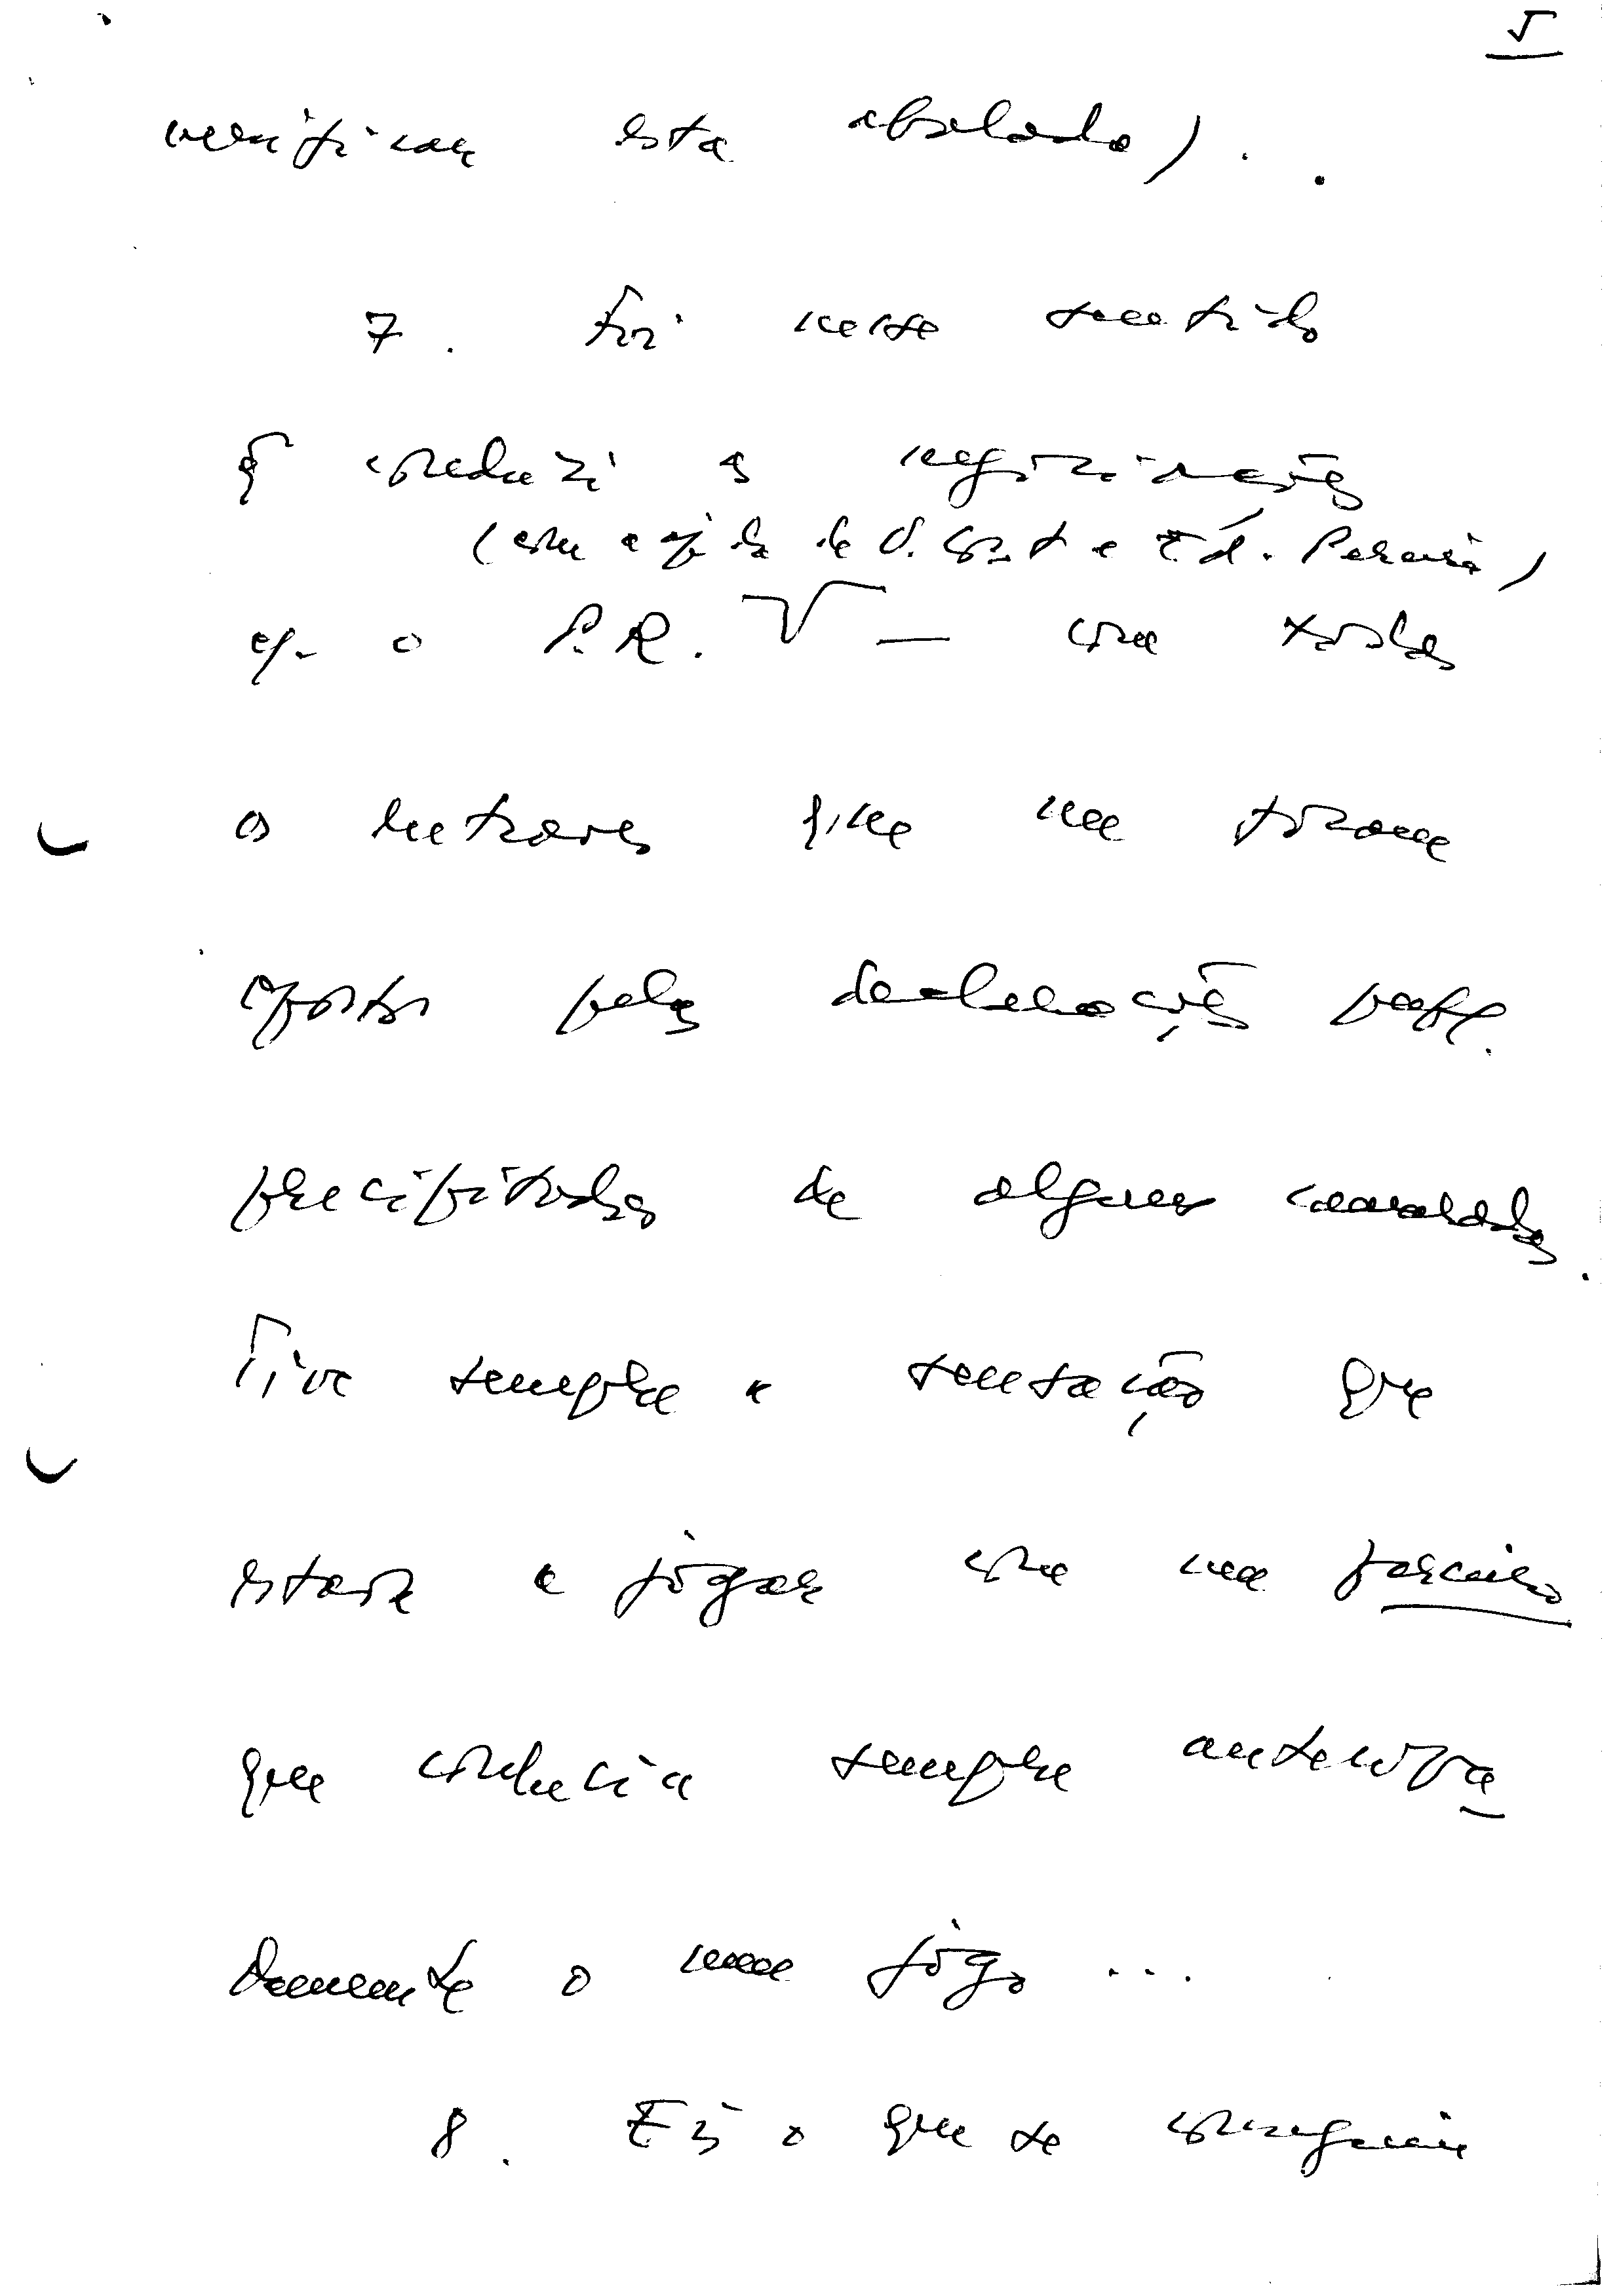 5
verificar esta abalada).
7. Foi neste sentido
q̃ conduzi as negociações
(com a ajuda de V. e Ed. Pereira)
c/ o P.R. — com todos
os entraves que me foram
opostos pelas declarações
precipitadas de alguns camaradas.
Tive sempre a sensação que
estava a jogar com um parceiro
que conhecia sempre antecipa
damente o meu jogo...
8. Eis o que se conseguiu